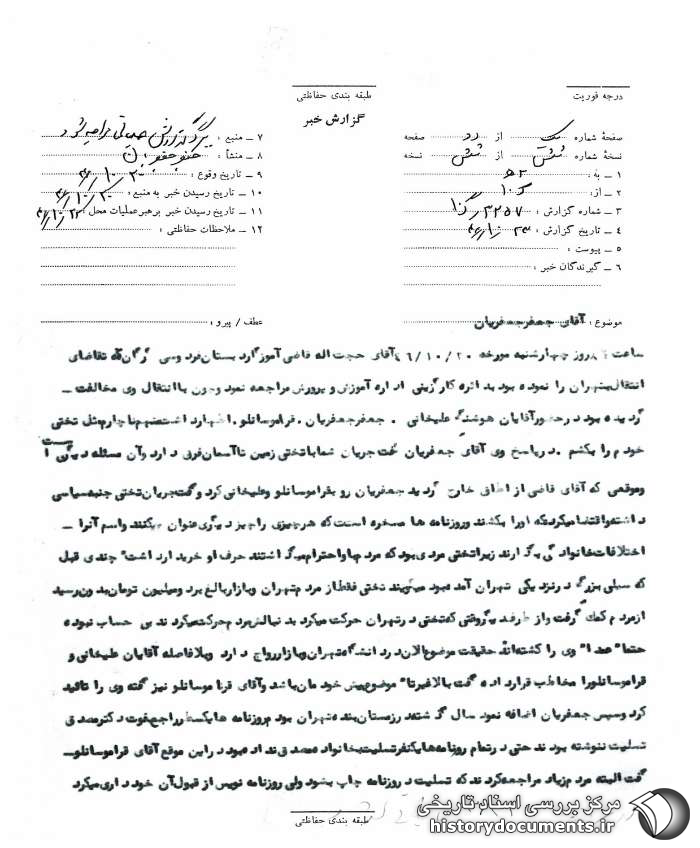 درجه فوریت
طبقه بندی حفاظتی
گزارش خبر
صفحهٔ شماره یک از دو صفحه
نسخهٔ شماره شش از شش نسخه
۱ ـ به :
۲ ـ از:
۳ ـ شماره گزارش :
۴ ـ تاریخ گزارش :
۵ ـ پیوست :
۶ ـ گیرندگان خبر :
۷ ـ منبع :
۸ ـ منشأ :
۹ ـ تاریخ وقوع :
۱۰ ـ تاریخ رسیدن خبر به منبع :
۱۱ ـ تاریخ رسیدن خبر برهبرعملیات محل :
۱۲ ـ ملاحظات حفاظتی :
موضوع : آقای جعفرجعفریان
عطف / پیرو :
ساعت روز چهارشنبه مورخه ۴۶/۱۰/۲۰ آقای حجت اله قاضی آموزگارد بستان فرد وسی گرگان که تقاضای
انتقال بتهران را نموده بود بد ائره کارگزینی اد اره آموزش و پرورش مراجعه نمود وچون باانتقال وی مخالفت ـ
گرد یده بود د رحضورآقایان هوشنگ علیخانی . جعفرجعفریان . قراموسانلو . اظهارد اشت منهم ناچارم مثل تختی
خود م را بکشم . د رپاسخ وی آقای جعفریان گفت جریان شما باتختی زمین تاآسمان فرق د ارد وآن مسئله د یگری است
وموقعی که آقای قاضی از اطاق خارج گرد ید جعفریان رو بقراموسانلو وعلیخانی کرد و گفت جریان تختی جنبه سیاسی
د اشته واقتضا میکرد که اورا بکشند وروزنامه ها مسخره است که هرچیزی را چیز د یگری عنوان میکنند واسم آنرا ـ
اختلافات خانواد گی میگذ ارند زیراتختی مرد ی بود که مرد م باو احترام میگذ اشتند حرف او خرید ارد اشت چند ی قبل
که سیلی بزرگ د ر نزد یکی تهران آمد ه بود میگویند تختی فقط از مرد م تهران وبازار بالغ برد ومیلیون تومان بد ون رسید
ازمرد م کمک گرفت واز طرف د یگر وقتی که تختی د رتهران حرکت میکرد بد نبالش مرد م حرکت میکرد ند بی حساب نبوده
حتما" عمد ا" وی را کشته اند حقیقت موضوع الان د رد انشگاه تهران وبازاررواج د ارد وبلافاصله آقایان علیخانی و
قراموسانلورا مخاطب قرارد اد ه گفت بالاغیرتا" موضوع پیش خود مان باشد وآقای قراموسانلو نیز گفته وی را تائید
کرد وسپس جعفریان اضافه نمود سال گذ شته د رزمستان بنده تهران بود م روزنامه ها یک سطر راجع بفوت د کترمصد ق
تسلیت ننوشته بود ند حتی د رتمام روزنامه ها یکنفر تسلیت بخانواد ه مصد ق ند اد ه بود د راین موقع آقای قراموسانلوـ
گفت البته مرد م زیاد مراجعه کرد ند که تسلیت د روزنامه چاپ بشود ولی روزنامه نویس از قبول آن خود د اری میکرد
طبقه بندی حفاظتی
مرکز بررسی اسناد تاریخی
historydocuments.ir